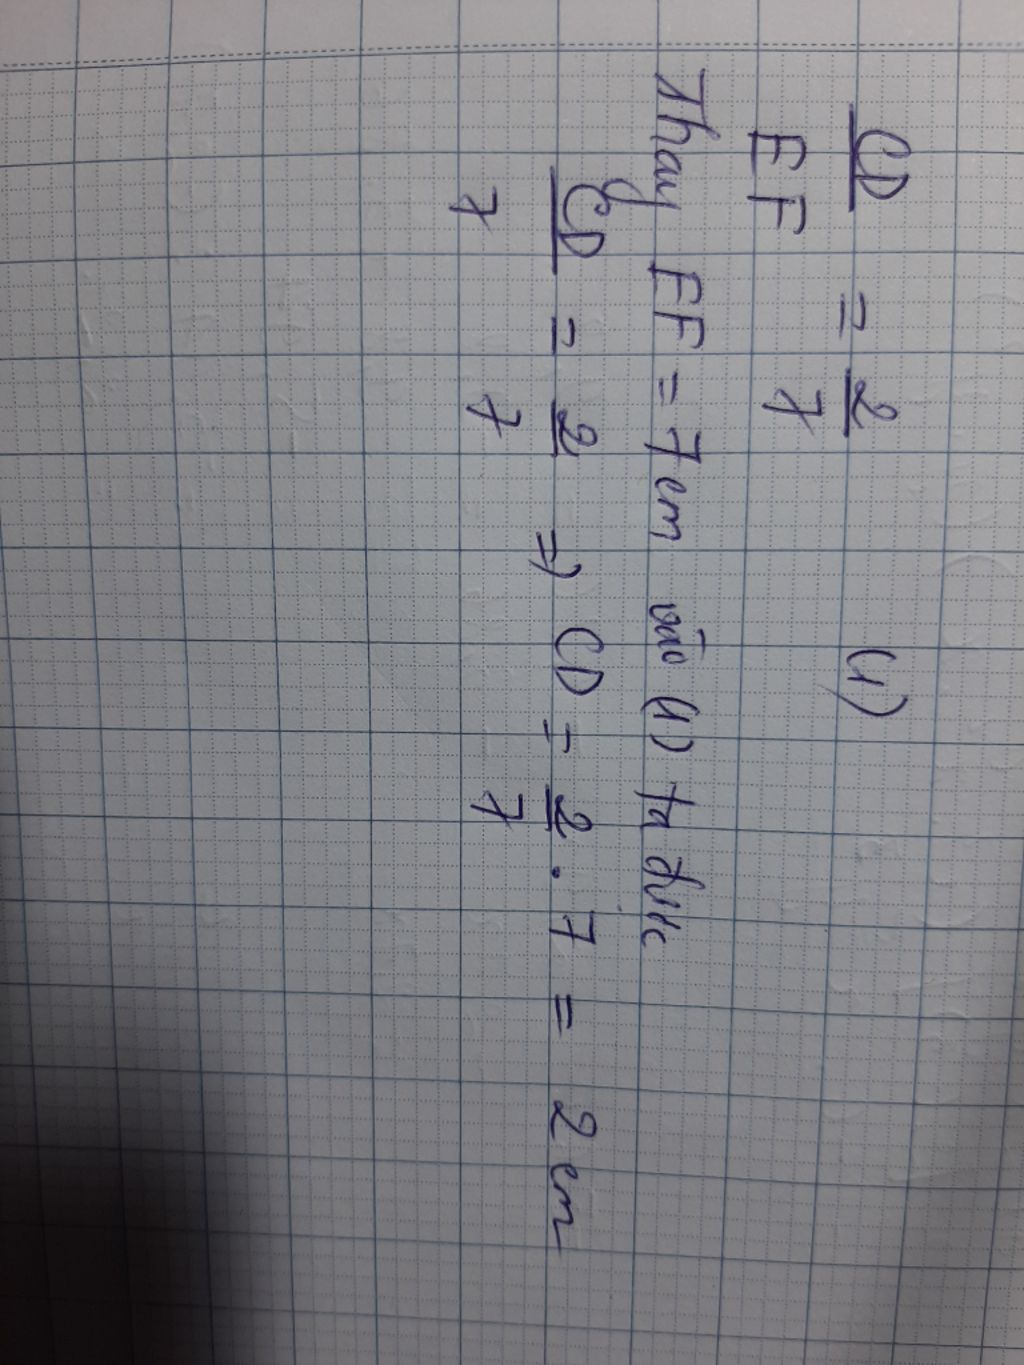 CD/EF = 2/7 (1)
Thay EF = 7cm vào (1) ta được
CD/7 = 2/7 => CD = 2/7 . 7 = 2 cm